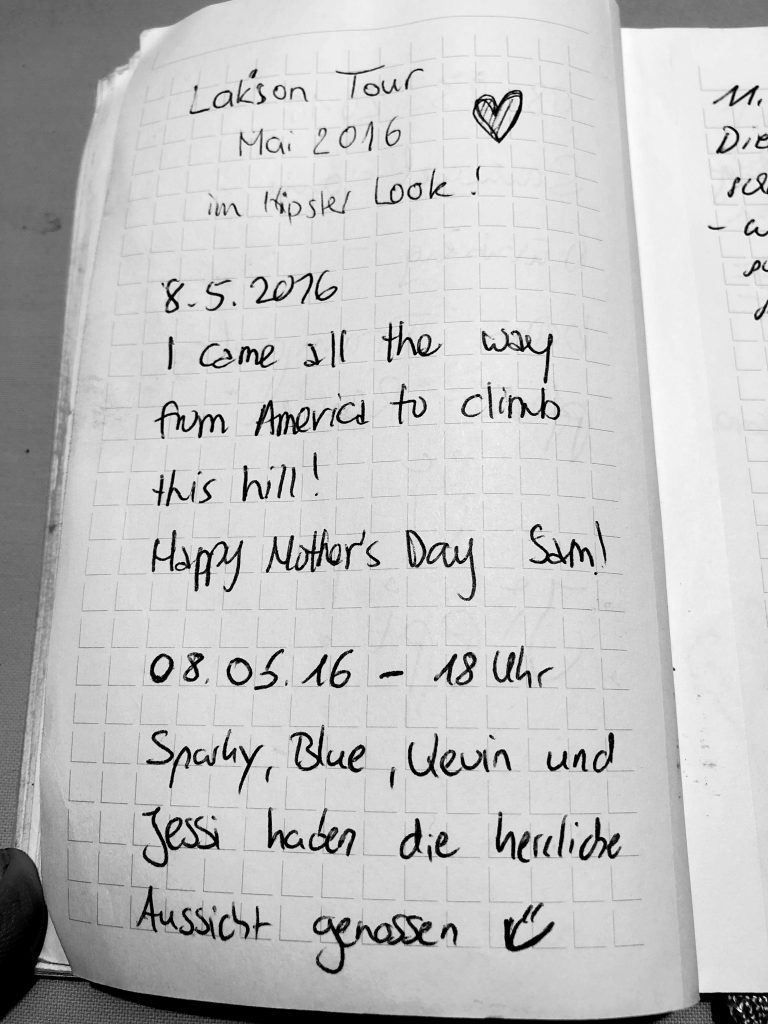 Lakson Tour
Mai 2016
im Hipster Look!
8.5.2016
I came all the way
from America to climb
this hill!
Happy Mother's Day Sam!
08.05.16 - 18 Uhr
Sparky, Blue, Kevin und
Jessi haben die herrliche
Aussicht genossen
11.
Die